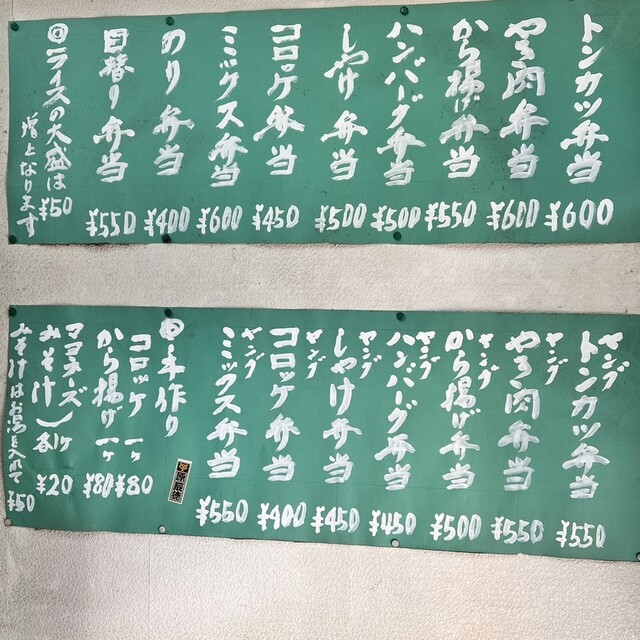 トンカツ弁当 ¥600
やき肉弁当 ¥600
から揚げ弁当 ¥550
ハンバーグ弁当 ¥500
しゃけ弁当 ¥500
コロッケ弁当 ¥450
ミックス弁当 ¥600
のり弁当 ¥400
日替り弁当 ¥550
◎ライスの大盛は ¥50
増となります
ヤングトンカツ弁当 ¥550
ヤングやき肉弁当 ¥550
ヤングから揚げ弁当 ¥500
ヤングハンバーグ弁当 ¥450
ヤングしゃけ弁当 ¥450
ヤングコロッケ弁当 ¥400
ヤングミックス弁当 ¥550
手作り
コロッケ 一ケ ¥80
から揚げ 一ケ ¥80
マヨネーズ
みそ汁 各1ケ ¥20
みそ汁はお湯を入れて ¥50
原辰徳